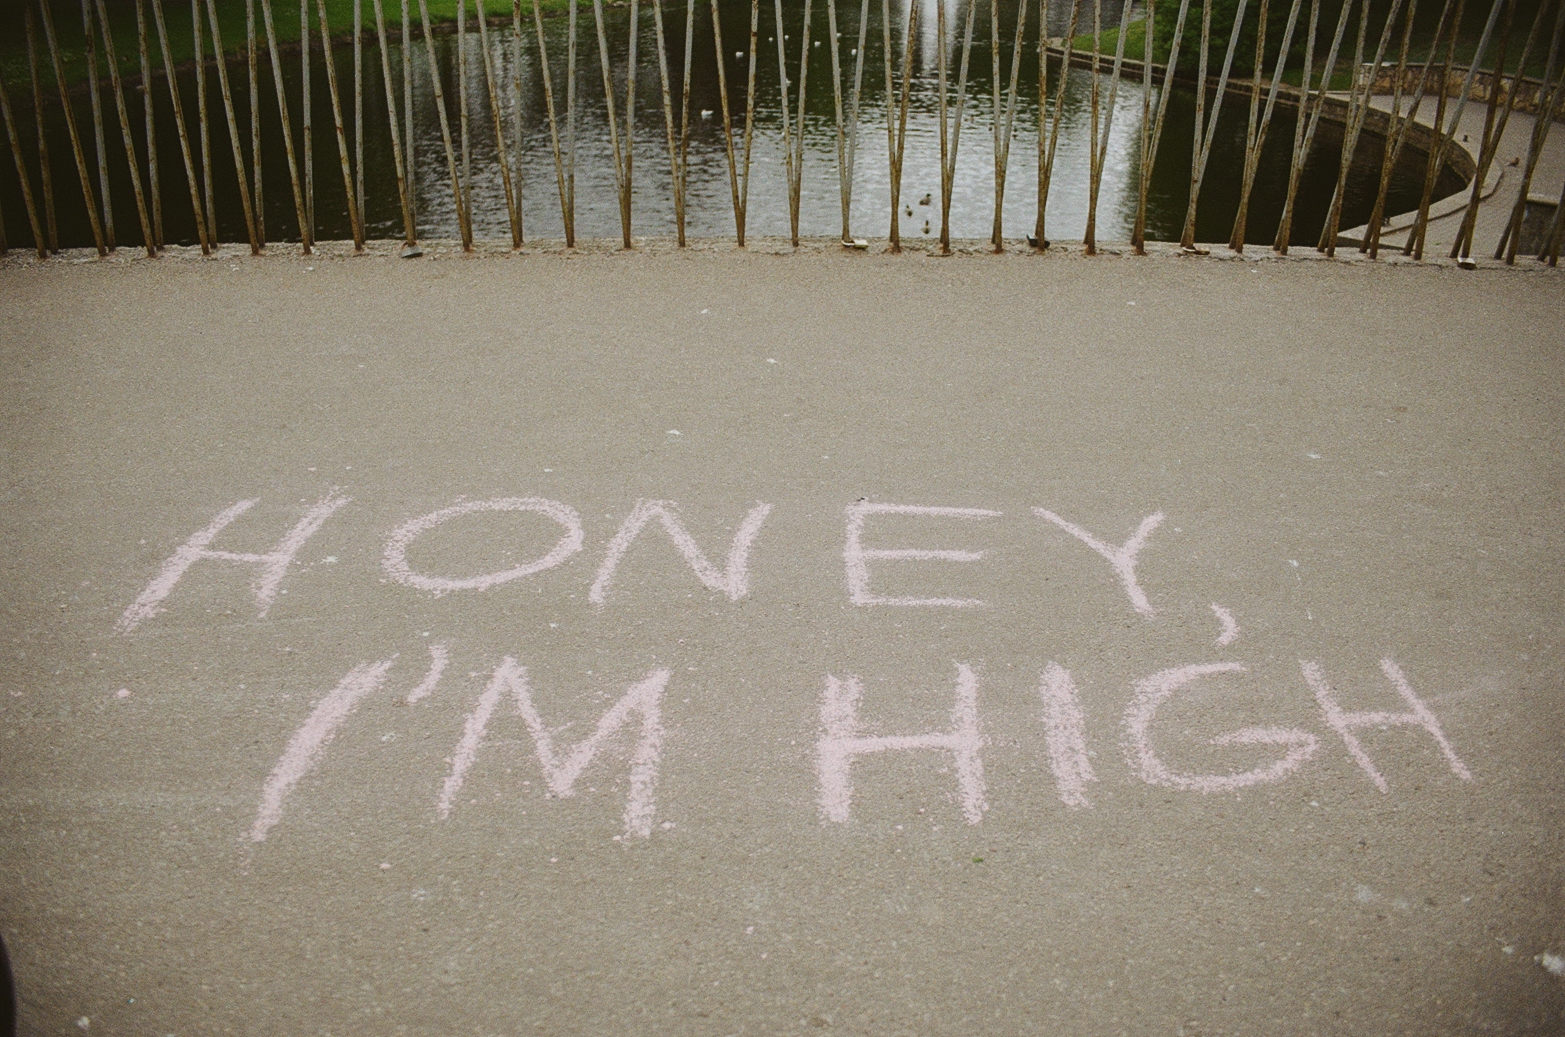 HONEY,
I'M HIGH